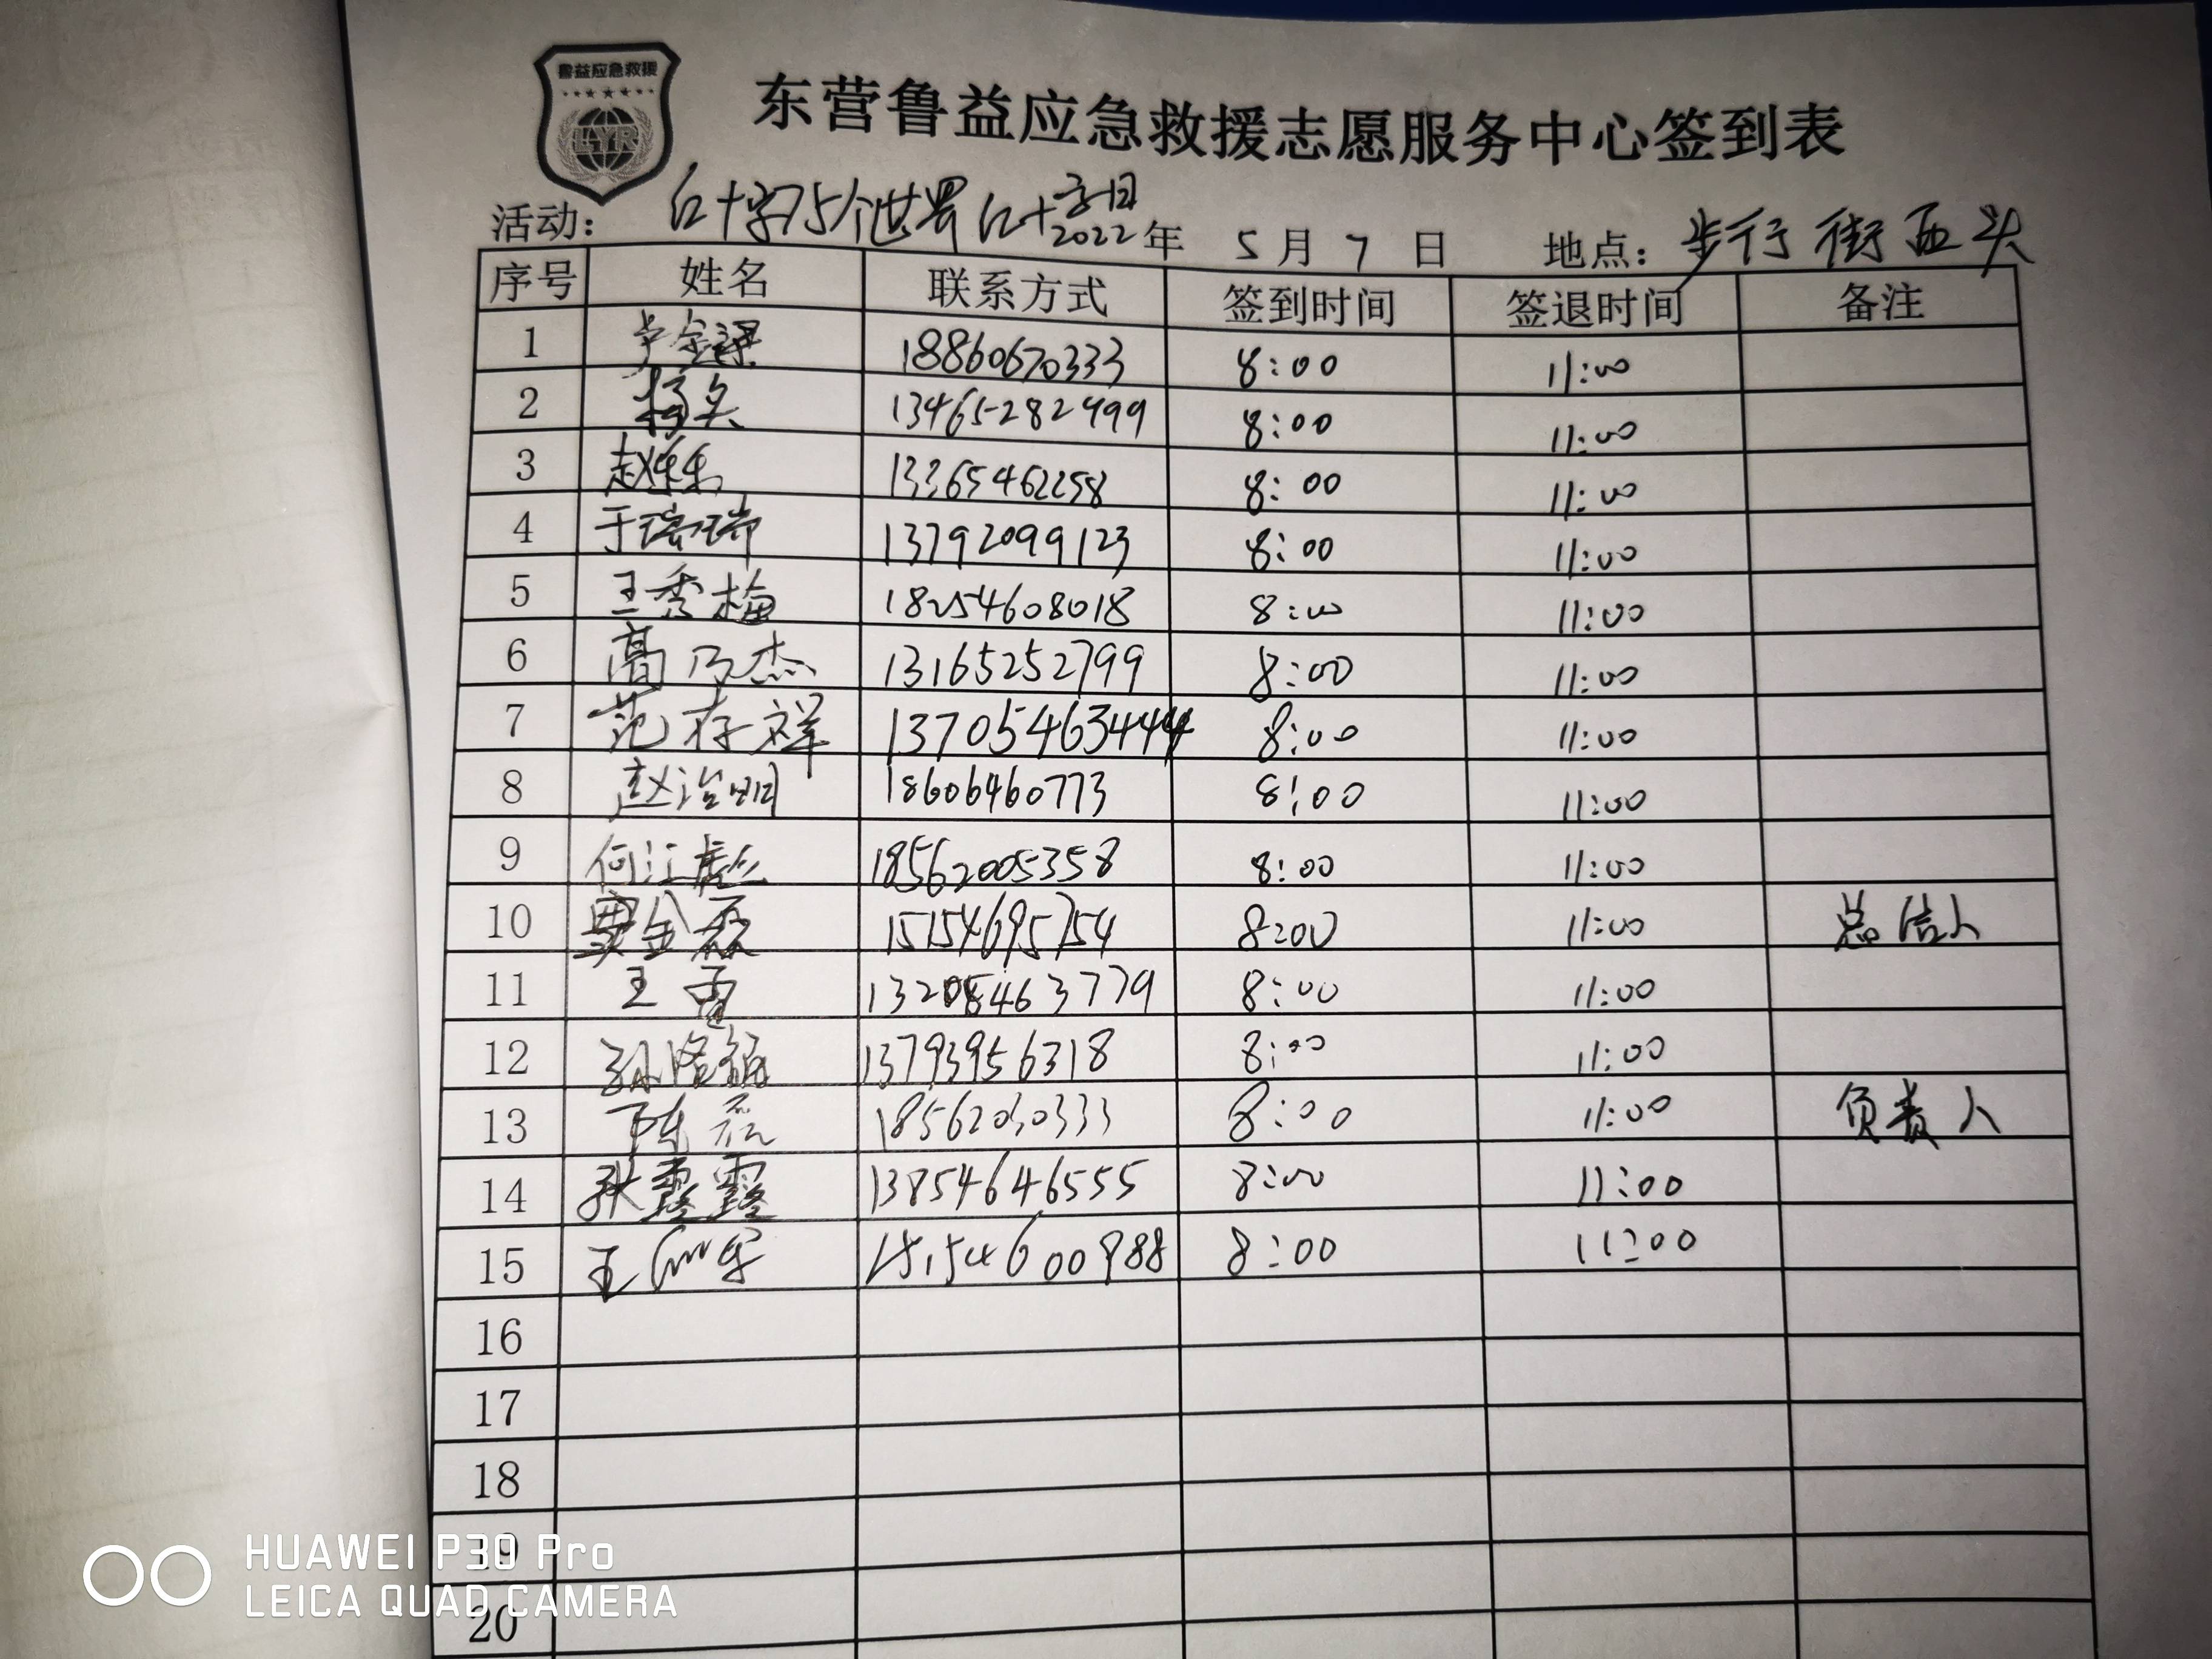 鲁益应急救援
LYR
东营鲁益应急救援志愿服务中心签到表
活动: 红十字75个世界红十字日 2022年 5月7日 地点: 步行街西头
序号 姓名 联系方式 签到时间 签退时间 备注
1 18860670333 8:00 11:00
2 13465282499 8:00 11:00
3 赵乐乐 13365462258 8:00 11:00
4 于瑞瑞 13792099123 8:00 11:00
5 王秀梅 18254608018 8:00 11:00
6 高乃杰 13165252799 8:00 11:00
7 范存祥 13705463444 8:00 11:00
8 赵治明 18606460773 8:00 11:00
9 何江彪 18562005358 8:00 11:00
10 金磊 15154695754 8:00 11:00 总结人
11 王雷 8:00 11:00
12 13793956318 8:00 11:00
13 陈磊 18562030333 8:00 11:00 负责人
14 张露露 13854646555 8:00 11:00
15 王 15154600988 8:00 11:00
16
17
18
19
20
HUAWEI P30 Pro
LEICA QUAD CAMERA